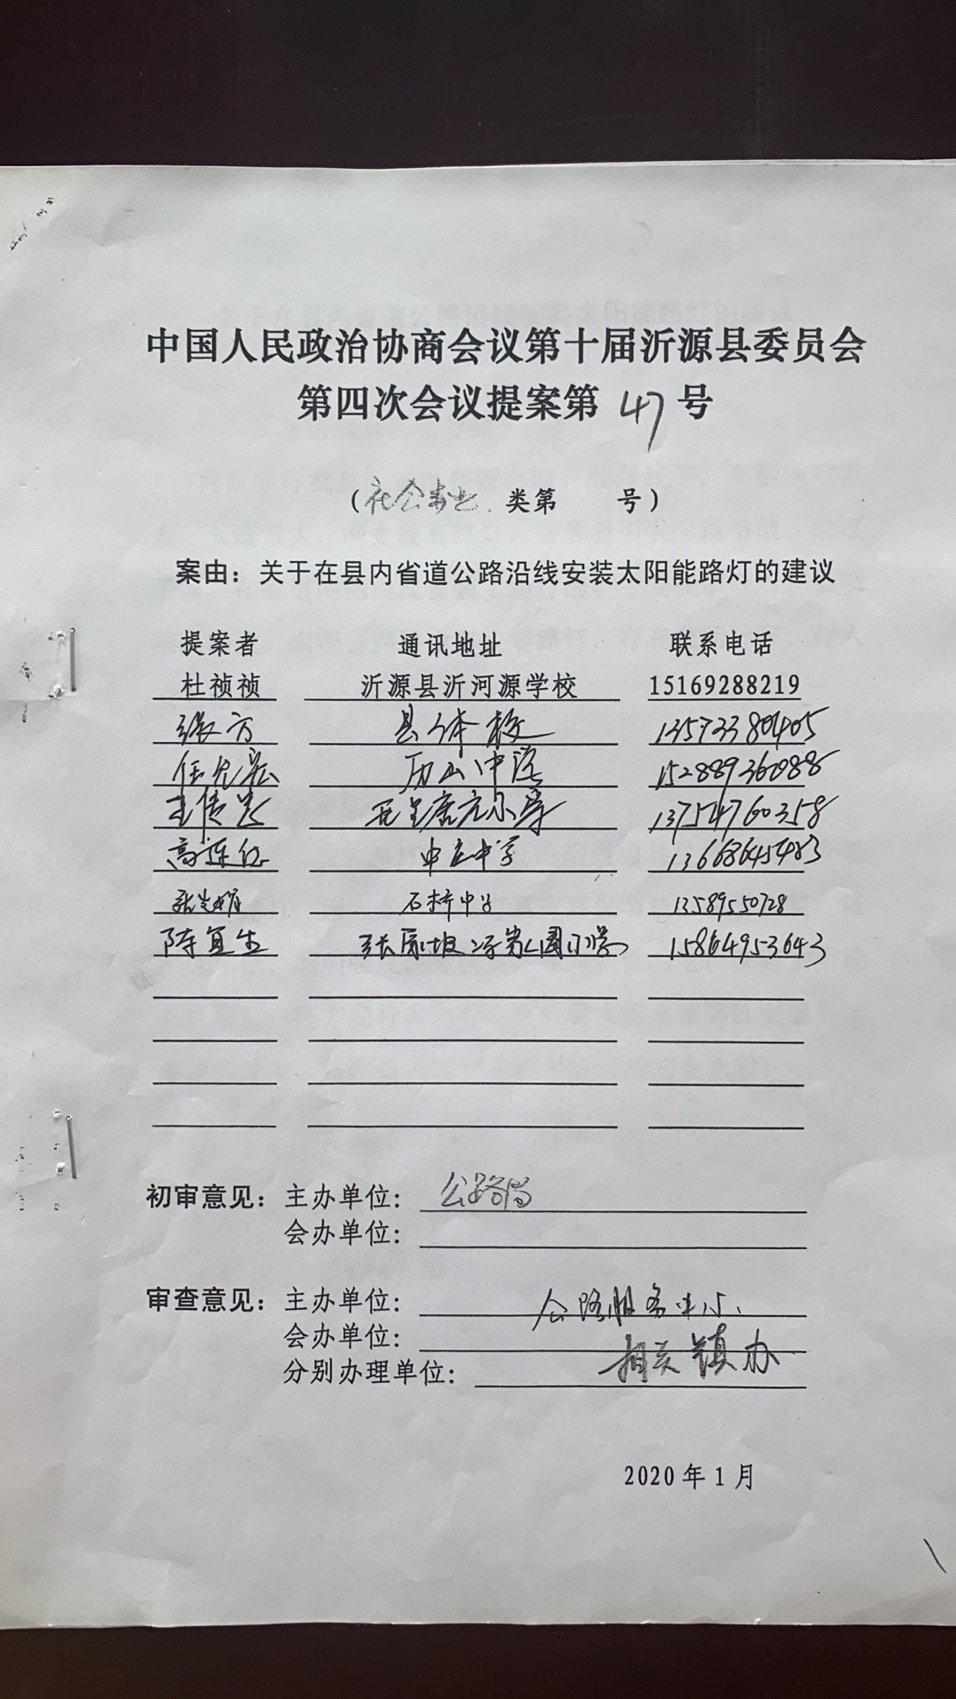 中国人民政治协商会议第十届沂源县委员会
第四次会议提案第 47 号
（社会事业 类第 号）
案由：关于在县内省道公路沿线安装太阳能路灯的建议
提案者 通讯地址 联系电话
杜祯祯 沂源县沂河源学校 15169288219
张方 县体校 13573380405
任允宏 历山中学 15288936088
王传 小学 13754760358
高 中庄中学 13668645483
张 石桥中学 13589550728
陈宜生 张家坡 小学 15864953643
初审意见：主办单位：公路局
会办单位：
审查意见：主办单位：公路服务中心、
会办单位：相关镇办
分别办理单位：
2020年1月